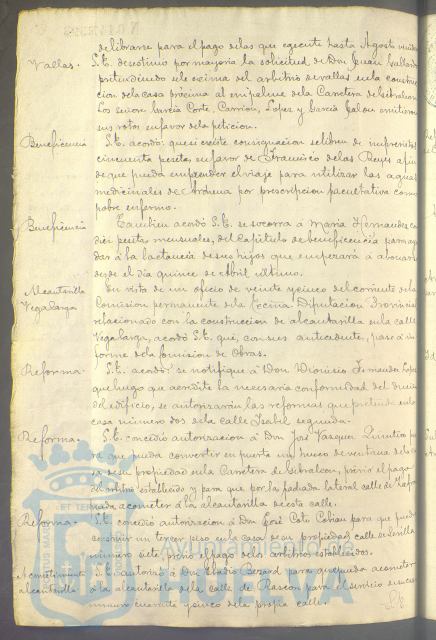 de librarse para el pago de las que ejecute hasta Agosto
Vallas. S.E. desestimó por mayoría la solicitud de Don Juan Gallardo
pretendiendo se le exima del arbitrio de vallas en la construc-
cion de la casa próxima al empalme de la Carretera de Gibraleon.
Los señores García Corte, Carrion, Lopez y García emitieron
sus votos en favor de la peticion.
Beneficencia S.E. acordó que si existe consignacion se libren
cincuenta pesetas en favor de Francisco de los Reyes a fin
de que pueda emprender el viaje para utilizar las aguas
medicinales de Archena por prescripcion facultativa como
pobre enfermo.
Beneficencia Tambien acordó S.E. se socorra á Maria Hernandez con
diez pesetas mensuales, del capítulo de beneficencia para ayu-
dar á la lactancia de sus hijos que empezará á abonarse
desde el día quince de Abril último.
Alcantarilla En vista de un oficio de veinte y cinco del corriente de la
Vega Larga Comision permanente de la Excma. Diputacion Provincial
relacionado con la construccion de alcantarilla en la calle
Vega larga, acordó S.E. que, con sus antecedentes, pase á in-
forme de la Comision de Obras.
Reforma. S.E. acordó se notifique á Don Dionisio Fernandez Lopez
que luego que acredite la necesaria conformidad del dueño
del edificio, se autorizarán las reformas que pretende en la
casa número dos de la calle Isabel segunda.
Reforma. S.E. concedió autorizacion á Don José Vazquez pa-
ra que pueda convertir en puerta un hueco de ventana de la ca-
sa de su propiedad en la Carretera de Gibraleon, previo el pago
del arbitrio establecido y para que por la fachada lateral calle de
acometer á la alcantarilla de esta calle.
Reforma. S.E. concedió autorizacion á Don José Coto Cobian para que pueda
construir un tercer piso en la casa de su propiedad calle de Sevilla
número siete, previo el pago de los arbitrios establecidos.
Acometimiento S.E. autorizó á Don Eladio Bezard para que pueda acometer
alcantarilla á la alcantarilla de la calle de Rascon para el servicio de su casa
número cuarenta y cinco de la propia calle.